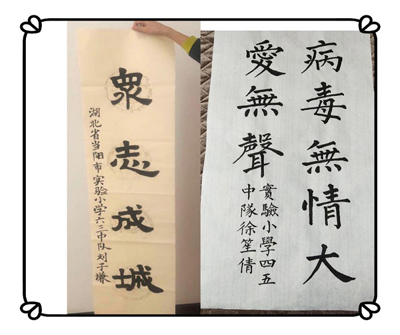 衆志成城
湖北省当阳市实验小学六三中队刘子墉
病毒無情大
愛無聲
實驗小學四五
中隊徐笙倩